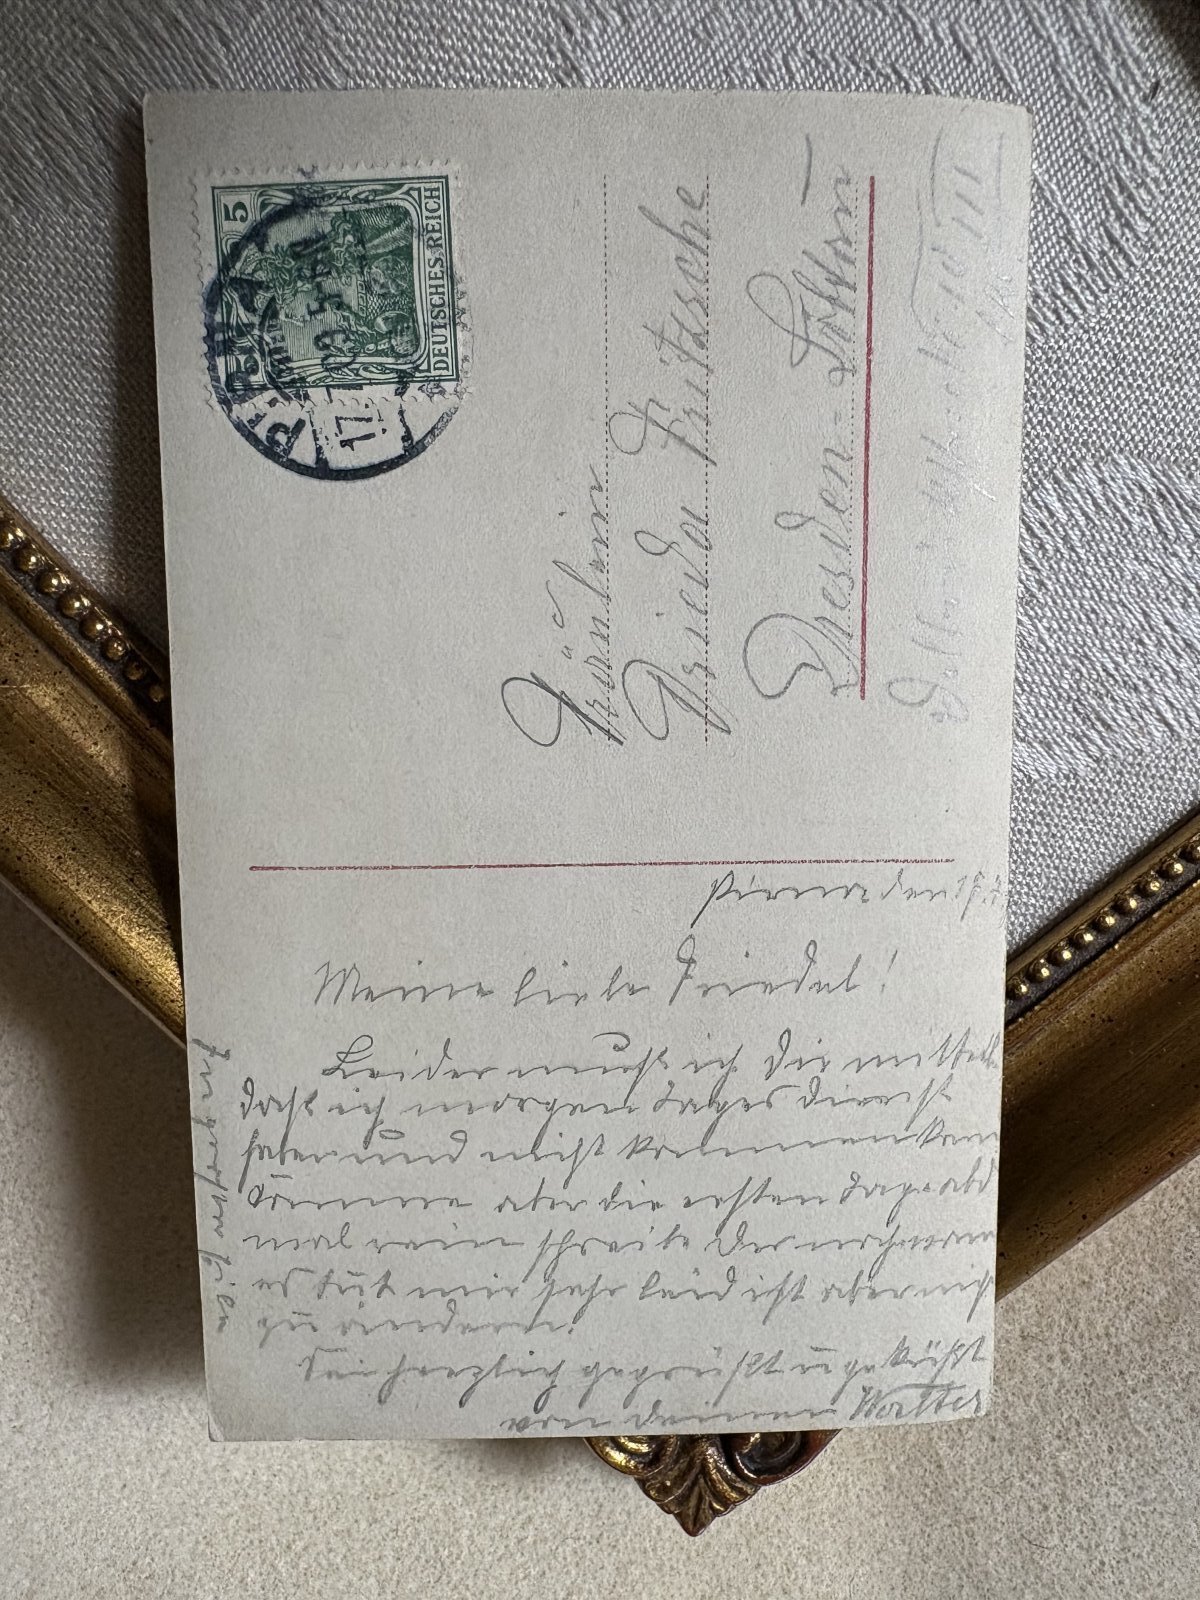 5
DEUTSCHES REICH
PIRNA
17. 09. 5-6N
Fräulein
Frieda Fritzsche
Dresden-Löbtau
Pirna den 17.
Meine liebe Friedel!
Leider muß ich Dir mitteilen
daß ich morgen Tages dienst
habe und nicht kommen kann
komme aber die ersten Tage
mal rein schreibe
es tut mir sehr leid ist aber nicht
zu ändern.
Sei herzlich gegrüßt u geküßt
von deinem Walter